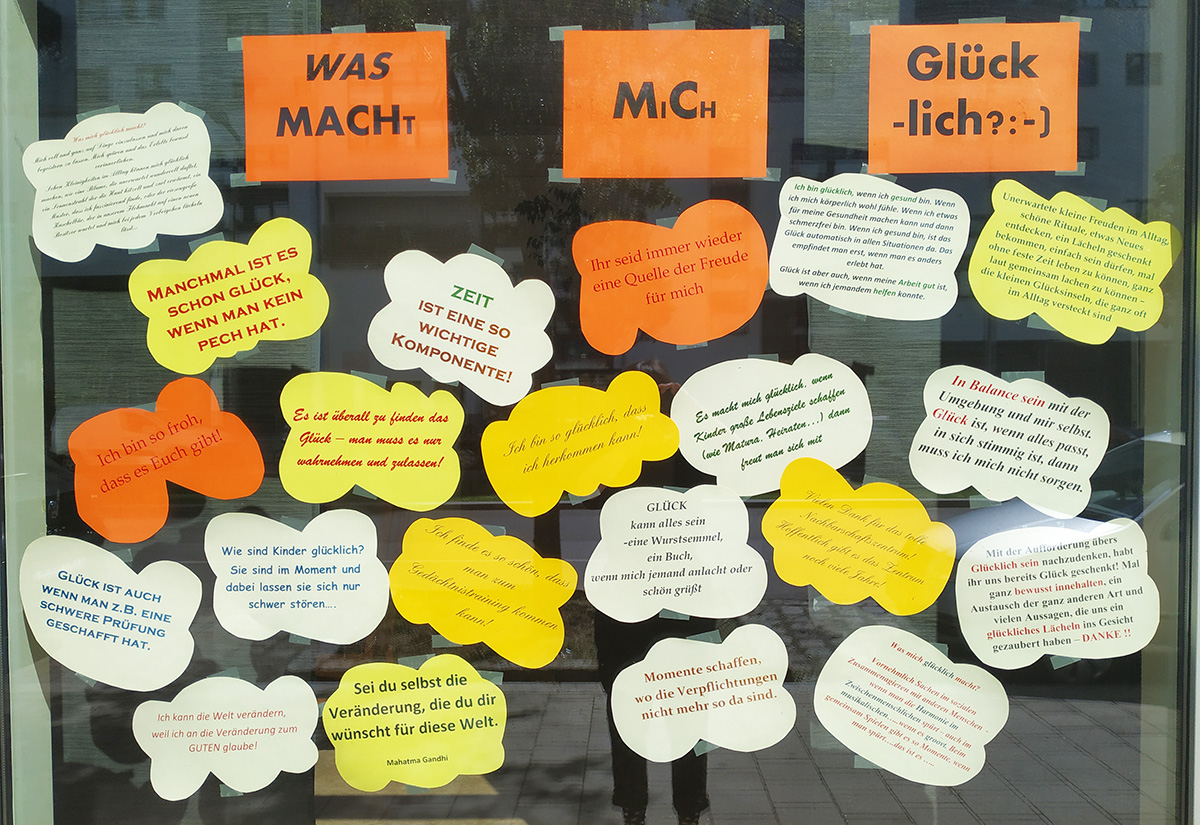 WAS
MACHT
MiCH
Glück
-lich?:-)
Was mich glücklich macht?
Mich voll und ganz auf Dinge einzulassen und mich davon
begeistern zu lassen. Mich spüren und das Erlebte bewusst
verinnerlichen.
Schon Kleinigkeiten im Alltag können mich glücklich
machen, wie eine Blume, die unerwartet wundervoll duftet,
ein Sonnenstrahl der die Haut kitzelt und sanft verwärmt, ein
Kinder, das
MANCHMAL IST ES
SCHON GLÜCK,
WENN MAN KEIN
PECH HAT.
ZEIT
IST EINE SO
WICHTIGE
KOMPONENTE!
Ihr seid immer wieder
eine Quelle der Freude
für mich
Ich bin glücklich, wenn ich gesund bin. Wenn
ich mich körperlich wohl fühle. Wenn ich etwas
für meine Gesundheit machen kann und dann
schmerzfrei bin. Wenn ich gesund bin, ist das
Glück automatisch in allen Situationen da. Das
empfindet man erst, wenn man es anders
erlebt hat.
Glück ist aber auch, wenn meine Arbeit gut ist,
wenn ich jemandem helfen konnte.
Unerwartete kleine Freuden im Alltag,
schöne Rituale, etwas Neues
entdecken, ein Lächeln geschenkt
bekommen, einfach sein dürfen, mal
ohne feste Zeit leben zu können, ganz
laut gemeinsam lachen zu können –
die kleinen Glücksinseln, die ganz oft
im Alltag versteckt sind
Ich bin so froh,
dass es Euch gibt!
Es ist überall zu finden das
Glück – man muss es nur
wahrnehmen und zulassen!
Ich bin so glücklich, dass
ich herkommen kann!
Es macht mich glücklich, wenn
Kinder große Lebensziele schaffen
(wie Matura, Heiraten...) dann
freut man sich mit
In Balance sein mit der
Umgebung und mir selbst.
Glück ist, wenn alles passt,
in sich stimmig ist, dann
muss ich mich nicht sorgen.
GLÜCK IST AUCH
WENN MAN Z.B. EINE
SCHWERE PRÜFUNG
GESCHAFFT HAT.
Wie sind Kinder glücklich?
Sie sind im Moment und
dabei lassen sie sich nur
schwer stören....
Ich finde es so schön, dass
man zum
Gedächtnistraining kommen
kann!
GLÜCK
kann alles sein
-eine Wurstsemmel,
ein Buch,
wenn mich jemand anlacht oder
schön grüßt
Vielen Dank für das tolle
Nachbarschaftszentrum!
Hoffentlich gibt es das Zentrum
noch viele Jahre!
Mit der Aufforderung übers
Glücklich sein nachzudenken, habt
ihr uns bereits Glück geschenkt! Mal
ganz bewusst innehalten, ein
Austausch der ganz anderen Art und
vielen Aussagen, die uns ein
glückliches Lächeln ins Gesicht
gezaubert haben – DANKE !!
Ich kann die Welt verändern,
weil ich an die Veränderung zum
GUTEN glaube!
Sei du selbst die
Veränderung, die du dir
wünscht für diese Welt.
Mahatma Gandhi
Momente schaffen,
wo die Verpflichtungen
nicht mehr so da sind.
Was mich glücklich macht?
Vornehmlich Sachen im sozialen
Zusammenagieren mit anderen Menschen -
wenn man die Harmonie im
Zwischenmenschlichen spürt – auch im
musikalischen.....wenn es groovt. Beim
gemeinsam Spielen gibt es so Momente, wenn
man spürt....das ist es .....